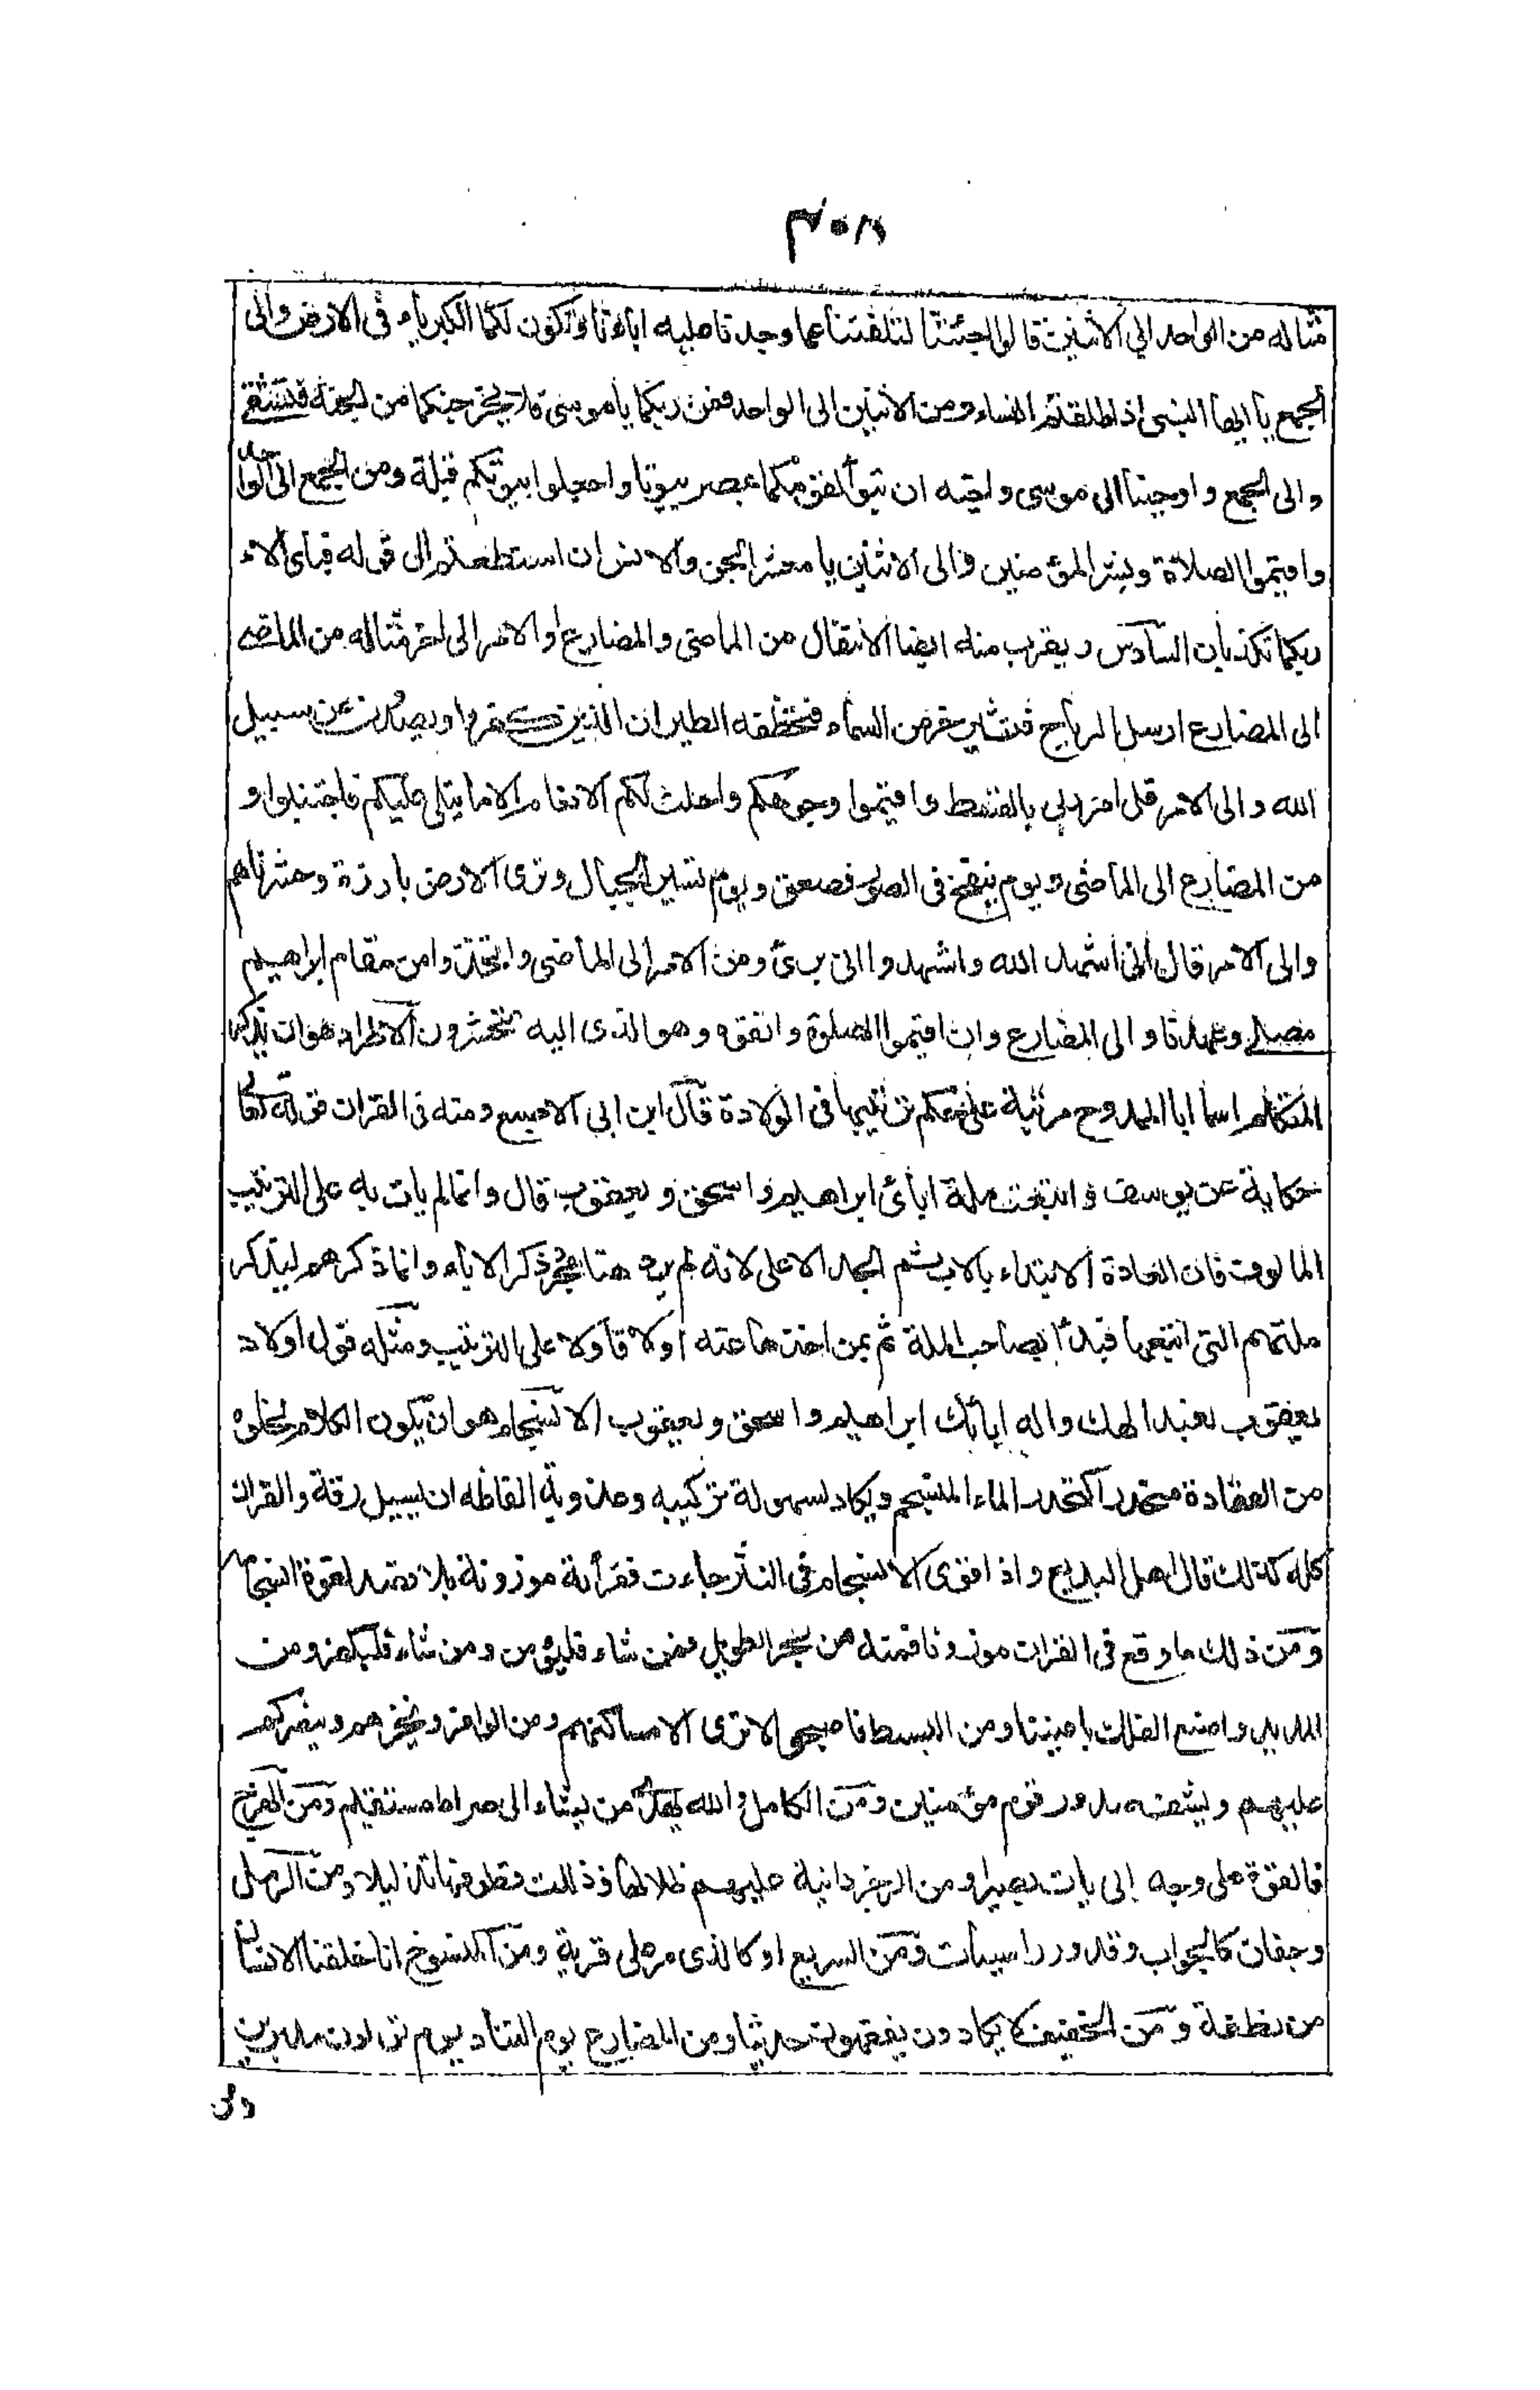 ٣٠٨
مثاله من الواحد الي الاثنين قالوا اجئتنا لتلفتنا عما وجدنا عليه اباءنا وتكون لكما الكبرياء فى الارض والى
الجمع يا ايها النبى اذا طلقتم النساء ومن الاثنين الى الواحد فمن ربكما يا موسى فلا يخرجنكما من الجنة فتشقى
والى الجمع واوحينا الى موسى واخيه ان تبوّأ لقومكما بمصر بيوتا واجعلوا بيوتكم قبلة ومن الجمع الى الواحد
واقيموا الصلاة وبشر المؤمنين والى الاثنين يا معشر الجن والانس ان استطعتم الى قوله فباى الاء
ربكما تكذبان السادس ويقرب منه ايضا الانتقال من الماضى والمضارع او الامر الى اخر مثاله من الماضى
الى المضارع ارسل الرياح فتثير خر من السماء فتخطفه الطير ان الذين كفروا ويصدون عن سبيل
الله والى الامر قل امر ربي بالقسط واقيموا وجوهكم واحلت لكم الانعام الا ما يتلى عليكم فاجتنبوا و
من المضارع الى الماضى ويوم ينفخ فى الصور فصعق ويوم نسير الجبال وترى الارض بارزة وحشرناهم
والى الامر قال انى اشهد الله واشهدوا انى برئ ومن الامر الى الماضى واتخذوا من مقام ابراهيم
مصلى وعهدنا والى المضارع وان اقيموا الصلوة واتقوه وهو الذى اليه تحشرون الاطراد هو ان يذكر
المتكلم اسما ابا الممدوح مرتبة على حكم ترتيبها فى الولادة قال ابن ابي الاصبع ومنه فى القران قوله تعالى
حكاية عن يوسف واتبعت ملة ابائى ابراهيم واسحق ويعقوب قال وانما لم يات به على الترتيب
المالوف فان العادة الابتداء بالاب ثم الجد الاعلى لانه لم يرد هنا مجرد ذكر الاباء وانما ذكرهم ليذكر
ملتهم التى اتبعها فبدأ بصاحب الملة ثم بمن اخذها عنه اولا فاولا على الترتيب ومثله قول اولاد
يعقوب نعبد الهك واله ابائك ابراهيم واسحق ويعقوب الانسجام هو ان يكون الكلام لخلوه
من العقادة متحدرا كتحدر الماء المنسجم ويكاد لسهولة تركيبه وعذوبة الفاظه ان يسيل رقة والقران
كله كذلك قال اهل البديع واذا قوى الانسجام فى النثر جاءت فقراته موزونة بلا قصد لقوة انسجامه
ومن ذلك ما وقع فى القران موزونا فمنه من بحر الطويل فمن شاء فليؤمن ومن شاء فليكفر ومن
المديد واصنع الفلك باعيننا ومن البسيط فاصبحوا لا ترى الا مساكنهم ومن الوافر ويخزهم وينصركم
عليهم ويشف صدور قوم مؤمنين ومن الكامل والله يهدى من يشاء الى صراط مستقيم ومن الهزج
فالقوه على وجه ابى يات بصيرا ومن الرجز دانية عليهم ظلالها وذللت قطوفها تذليلا ومن الرمل
وجفان كالجواب وقدور راسيات ومن السريع او كالذى مر على قرية ومن المنسرح انا خلقنا الانسان
من نطفة ومن الخفيف لا يكادون يفقهون حديثا ومن المضارع يوم التناد يوم تولون مدبرين